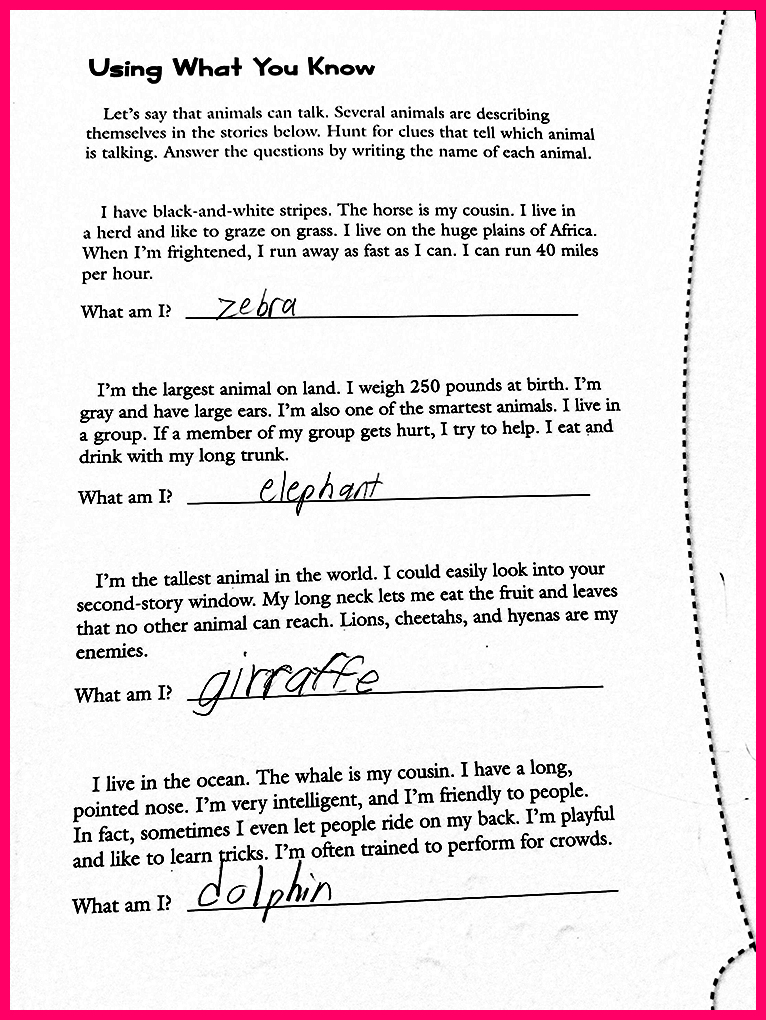 Using What You Know
Let's say that animals can talk. Several animals are describing
themselves in the stories below. Hunt for clues that tell which animal
is talking. Answer the questions by writing the name of each animal.
I have black-and-white stripes. The horse is my cousin. I live in
a herd and like to graze on grass. I live on the huge plains of Africa.
When I'm frightened, I run away as fast as I can. I can run 40 miles
per hour.
What am I? zebra
I'm the largest animal on land. I weigh 250 pounds at birth. I'm
gray and have large ears. I'm also one of the smartest animals. I live in
a group. If a member of my group gets hurt, I try to help. I eat and
drink with my long trunk.
What am I? elephant
I'm the tallest animal in the world. I could easily look into your
second-story window. My long neck lets me eat the fruit and leaves
that no other animal can reach. Lions, cheetahs, and hyenas are my
enemies.
What am I? girraffe
I live in the ocean. The whale is my cousin. I have a long,
pointed nose. I'm very intelligent, and I'm friendly to people.
In fact, sometimes I even let people ride on my back. I'm playful
and like to learn tricks. I'm often trained to perform for crowds.
What am I? dolphin